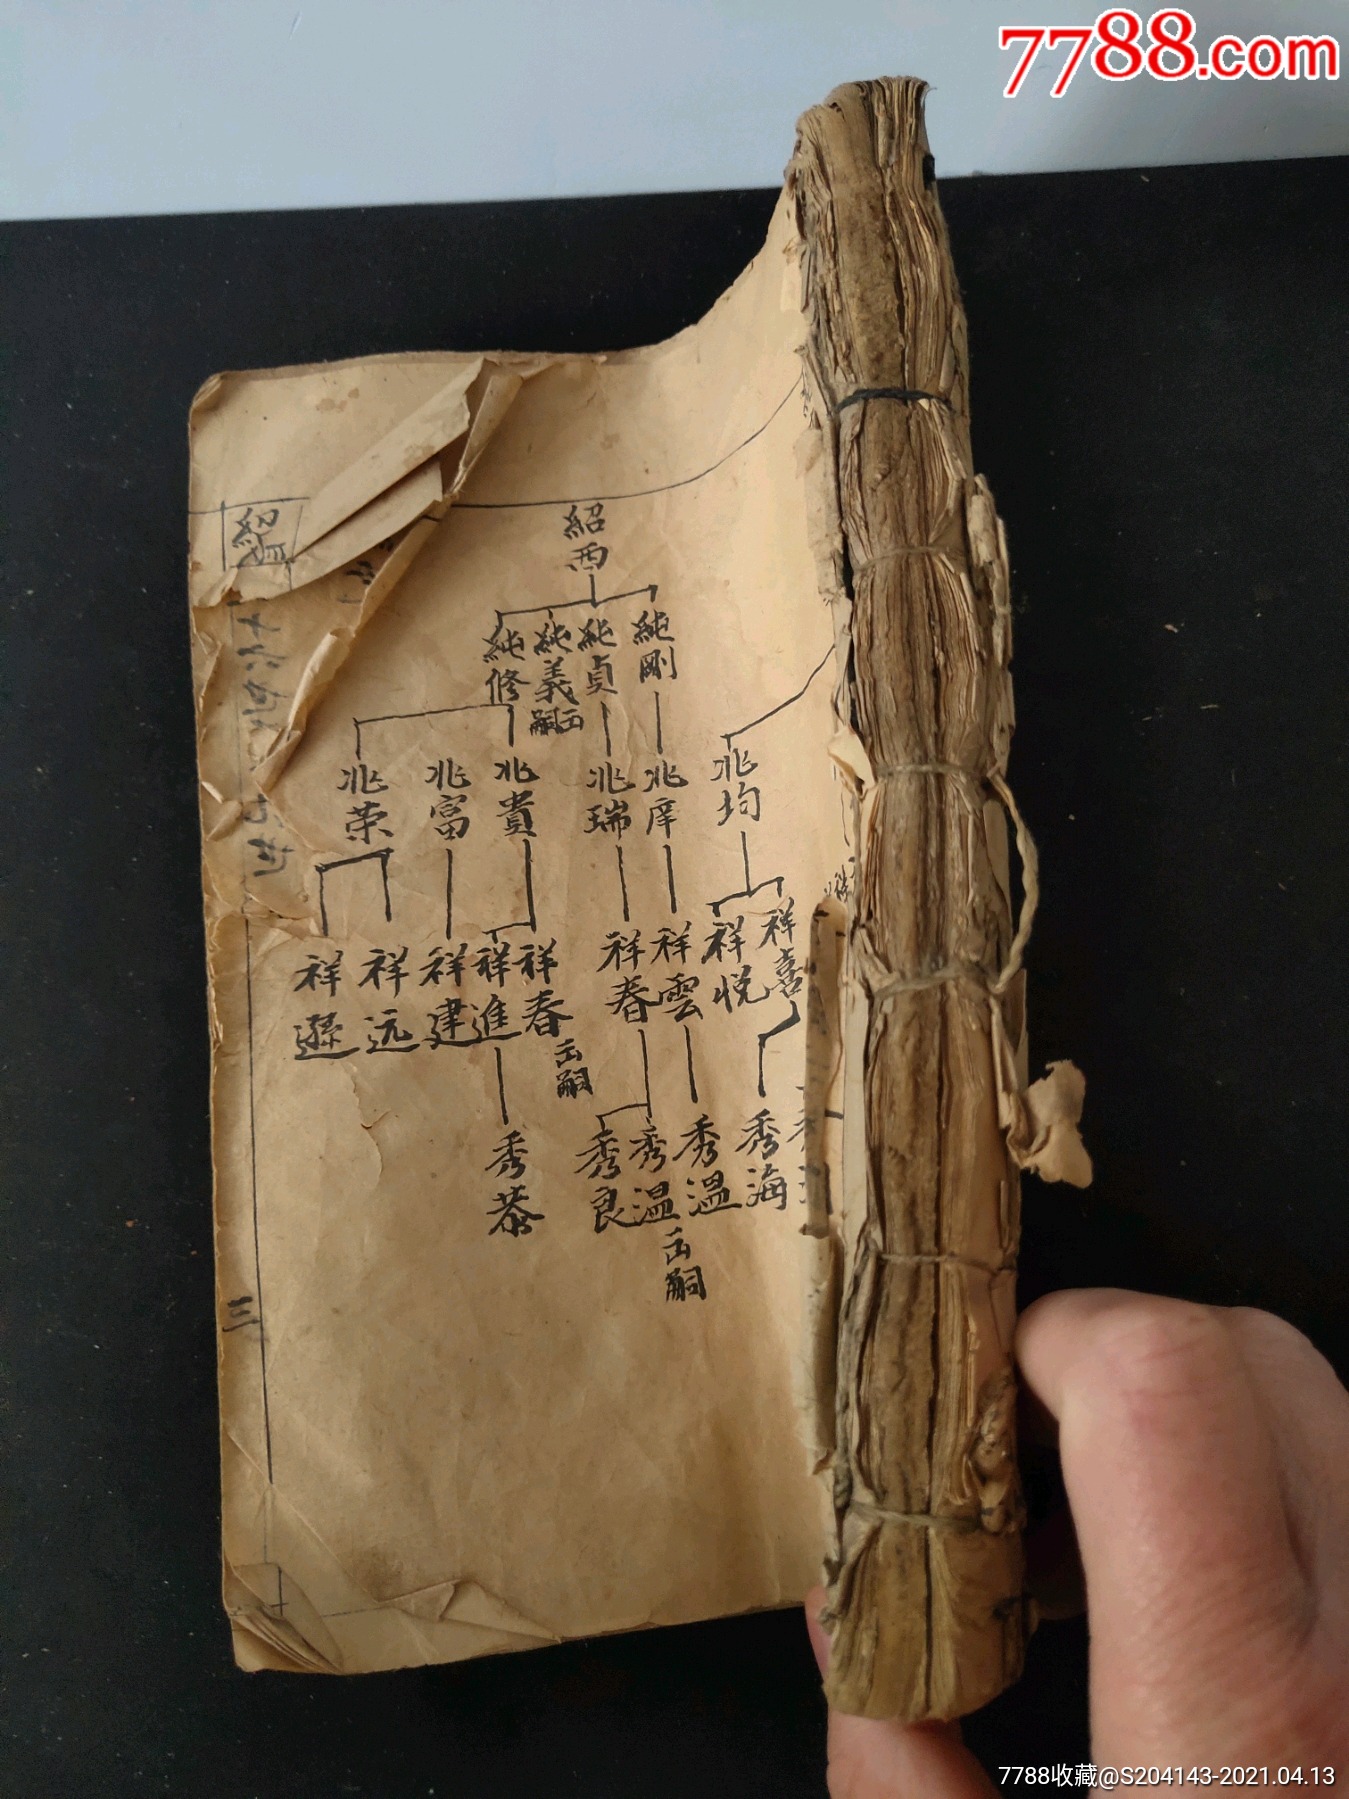 7788.com
紹西
純剛
純貞
純義
出嗣
純修
兆均
兆庠
兆瑞
兆貴
兆富
兆荣
祥喜
祥悦
祥雲
祥春
祥春
出嗣
祥進
祥建
祥远
祥遜
秀海
秀温
出嗣
秀温
秀良
秀恭
三
7788收藏@S204143-2021.04.13